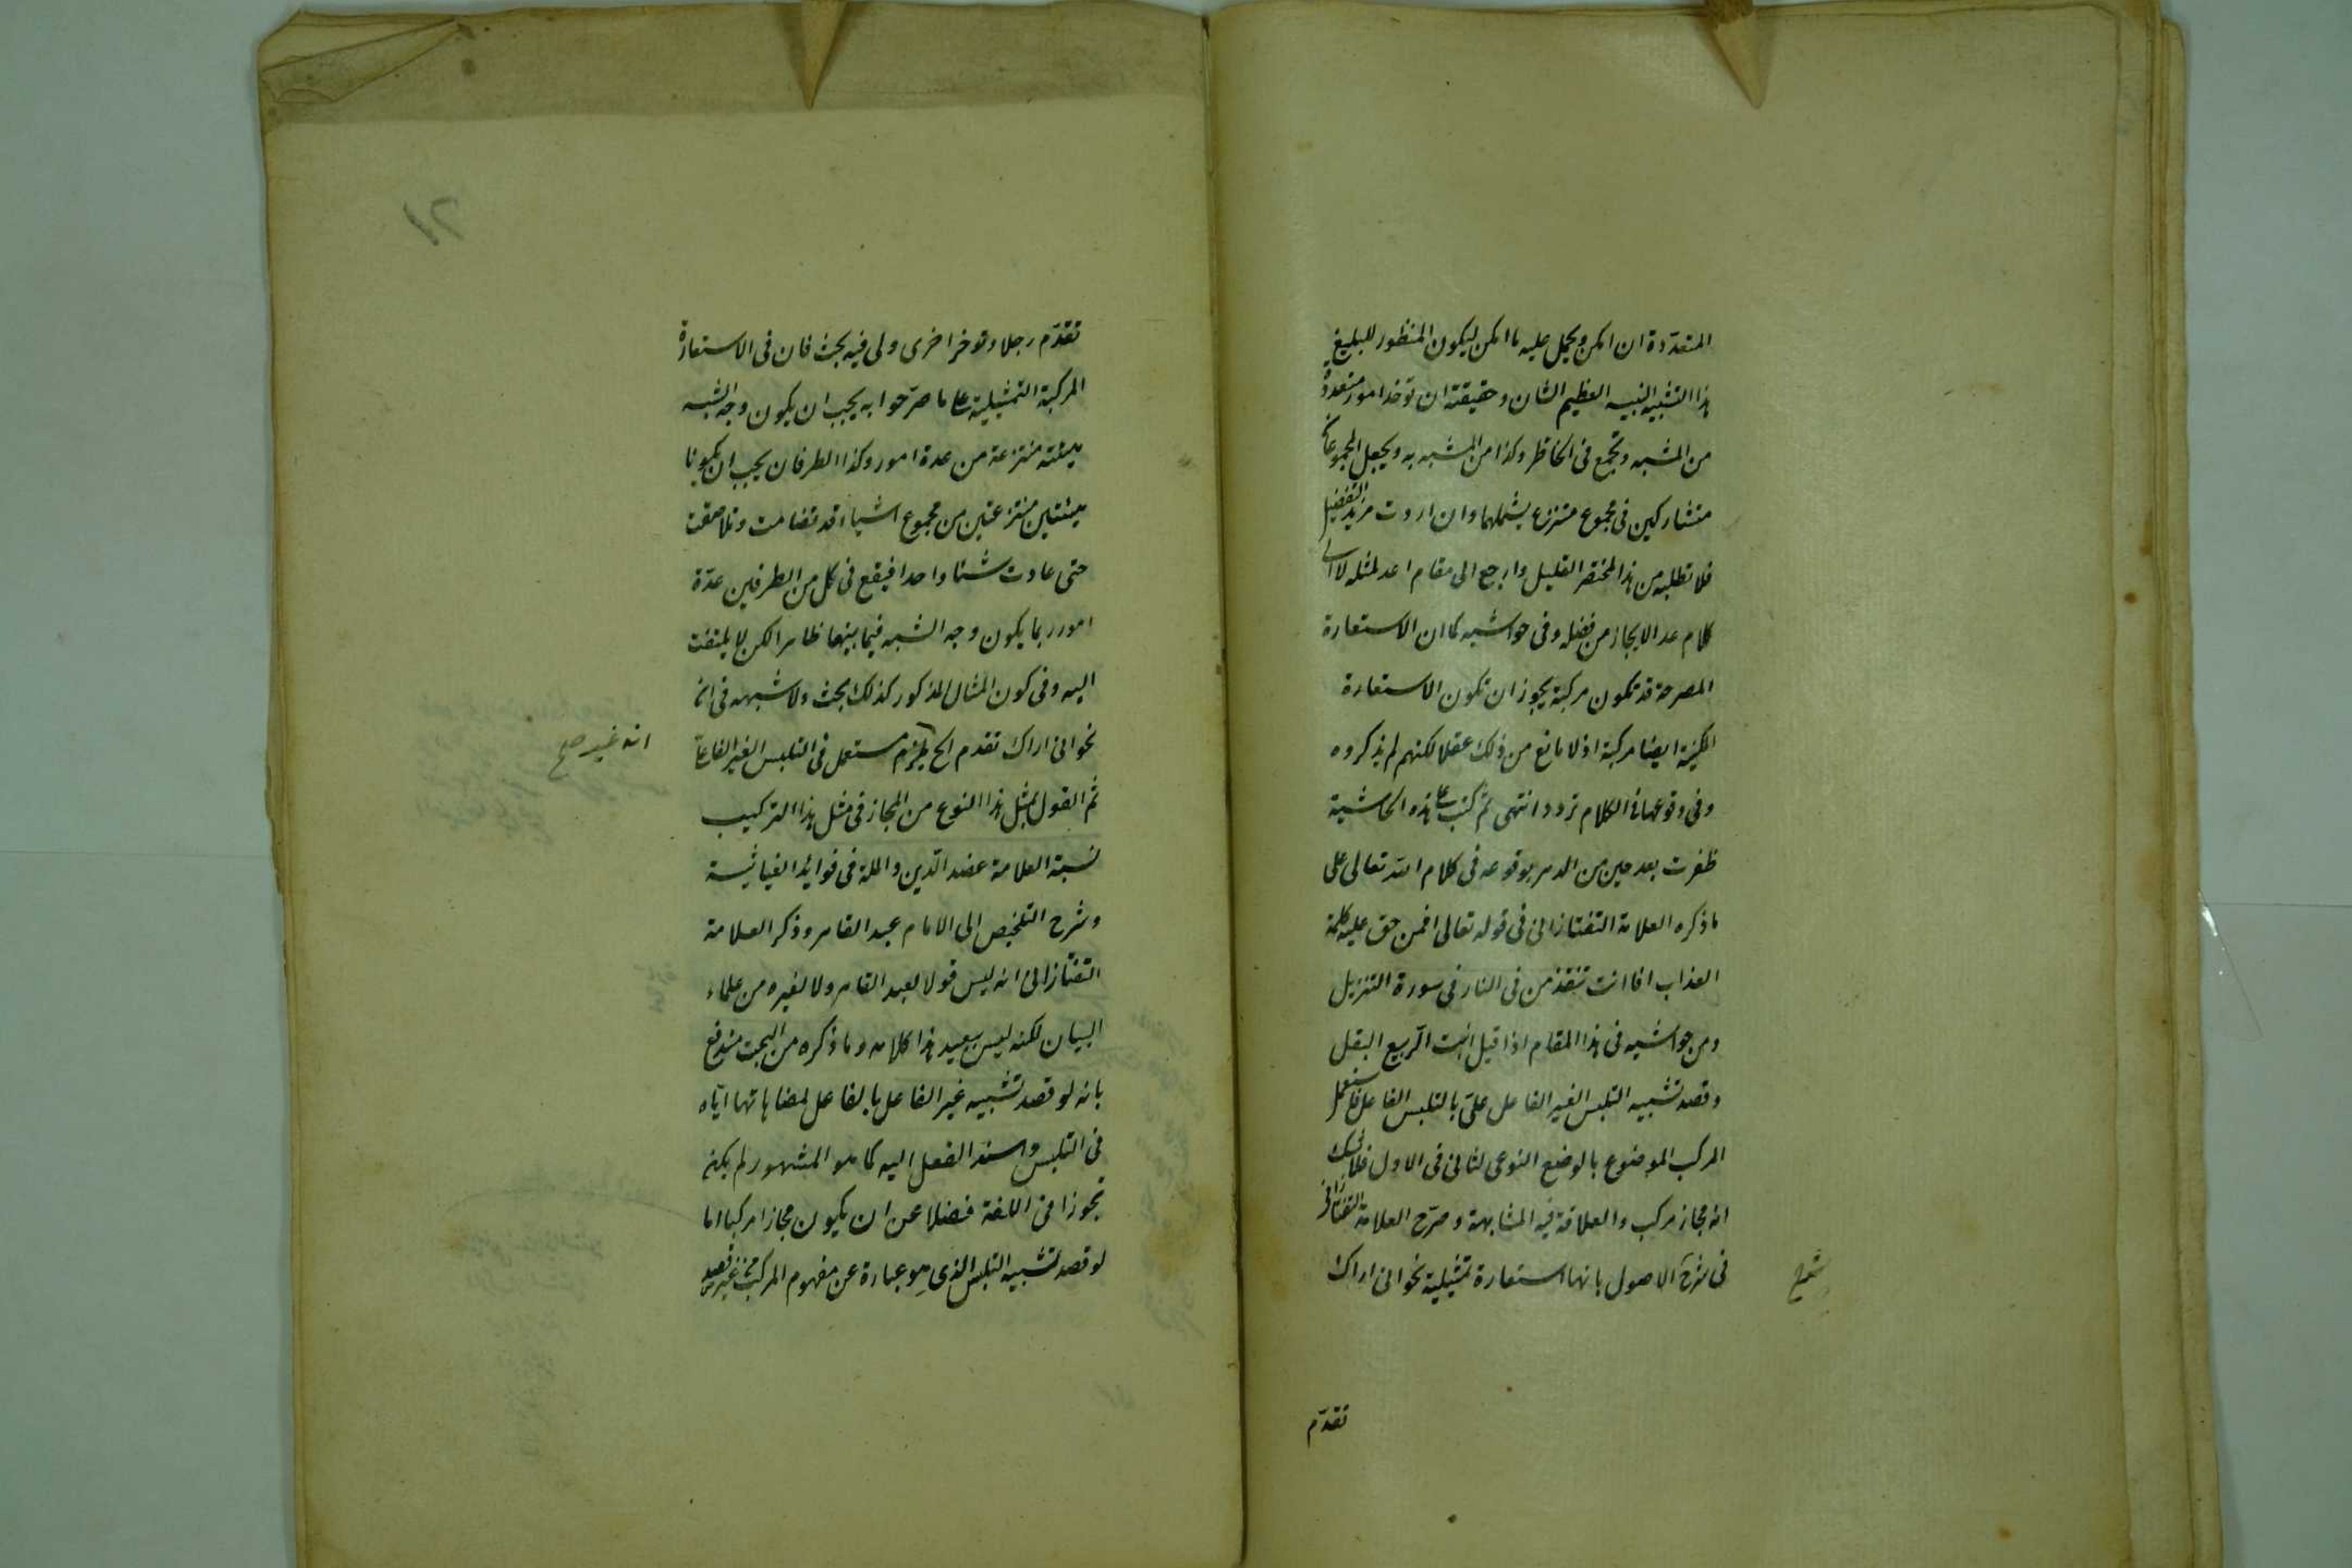 المتعددة ان امكن ويحمل عليه ما امكن ليكون المنظور للبليغ
هذا التشبيه النبيه العظيم الشان وحقيقته ان توخذ امور متعددة
من المشبه وتجمع فى الخاطر وكذا من المشبه به ويجعل المجموعان
متشاركين فى مجموع منتزع يشملهما وان اردت مزيد التفصيل
فلا تطلبه من هذا المختصر القليل وارجع الى مقام اعد لمثله لا الى
كلام عد الايجاز من فضله وفى حواشيه كما ان الاستعارة
المصرحة قد تكون مركبة يجوز ان تكون الاستعارة
المكنية ايضا مركبة اذ لا مانع من ذلك عقلا لكنهم لم يذكروه
وفى وقوعها فى الكلام تردد انتهى ثم كتب على هذه الحاشية
ظفرت بعد حين من الدهر بوقوعه فى كلام الله تعالى على
ما ذكره العلامة التفتازانى فى قوله تعالى افمن حق عليه كلمة
العذاب افانت تنقذ من فى النار فى سورة التنزيل
ومن حواشيه فى هذا المقام اذا قيل انبت الربيع البقل
وقصد تشبيه التلبس الغير الفاعلى بالتلبس الفاعلى فاستعمل
المركب الموضوع بالوضع النوعى للثانى فى الاول فلا شك
انه مجاز مركب والعلاقة فيه المشابهة وصرح العلامة التفتازانى
فى شرح الاصول بانها استعارة تمثيلية نحو انى اراك
تقدّم
٢١
تقدّم رجلا وتوخر اخرى ولى فيه بحث فان فى الاستعارة
المركبة التمثيلية على ما صرّحوا به يجب ان يكون وجه الشبه
هيئته منتزعة من عدة امور وكذا الطرفان يجب ان يكونا
هيئتين منتزعتين من مجموع اشياء قد تضامت وتلاصقت
حتى عادت شئا واحدا فيقع فى كل من الطرفين عدّة
امور ربما يكون وجه الشبه فيما بينها ظاهرا لكن لا يلتفت
اليه وفى كون المثال المذكور كذلك بحث ولا شبهه فى انه
نحو انى اراك تقدم الخ مستعمل فى التلبس الغير الفاعلى
انه غير صح
ثم القول بمثل هذا النوع من المجاز فى مثل هذا التركيب
نسبة العلامة عضد الدّين والملة فى فوائد الغياثية
وشرح التلخيص الى الامام عبد القاهر وذكر العلامة
التفتازانى انه ليس قولا لعبد القاهر ولا لغيره من علماء
البيان لكنه ليس ببعيد هذا كلامه وما ذكره من البحث مندفع
بانه لو قصد تشبيه غير الفاعل بالفاعل لمضاهاتها اياه
فى التلبس واسند الفعل اليه كما هو المشهور لم يكن
تجوزا فى اللغة فضلا عن ان يكون مجازا مركبا اما
لو قصد تشبيه التلبس الذى هو عبارة عن مفهوم المركب من غير قصد